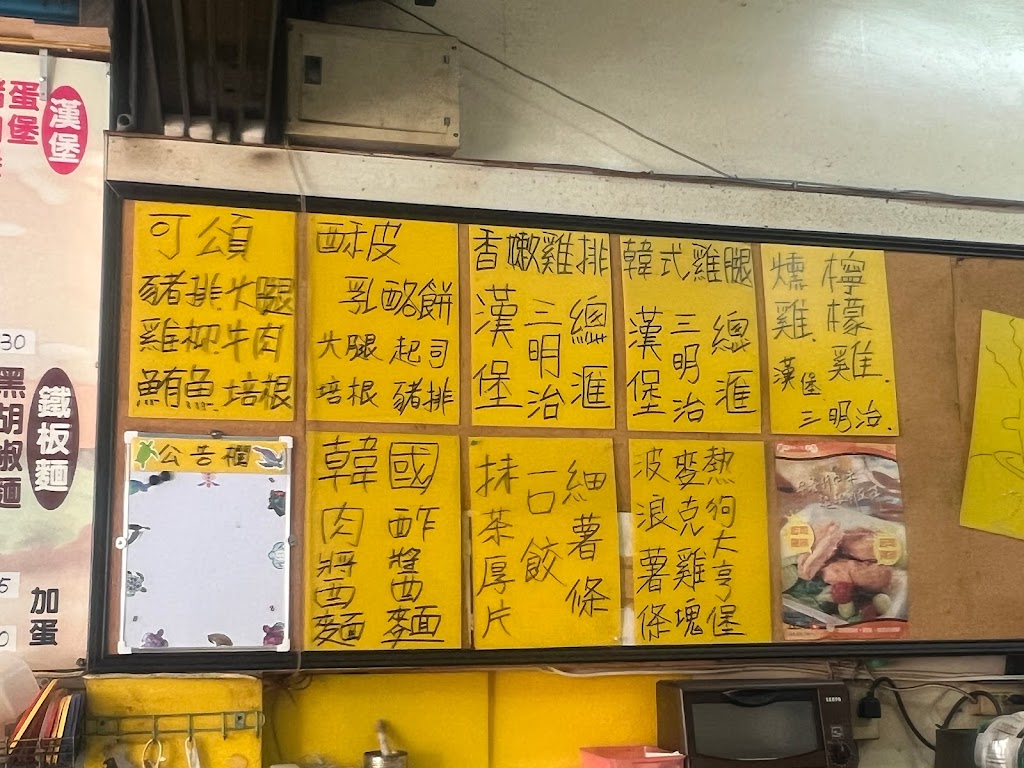 漢堡
蛋堡
30
鐵板麵
黑胡椒麵
加蛋
可頌
豬排大腿
雞柳牛肉
鮪魚培根
酥皮
乳酪餅
大腿 起司
培根 豬排
香嫩雞排
漢堡
三明治
總匯
韓式雞腿
漢堡
三明治
總匯
燻雞
檸檬雞
漢堡
三明治
公告欄
韓國
肉醬麵
酢醬麵
細薯條
一口餃
抹茶厚片
熱狗大亨堡
麥克雞塊
波浪薯條